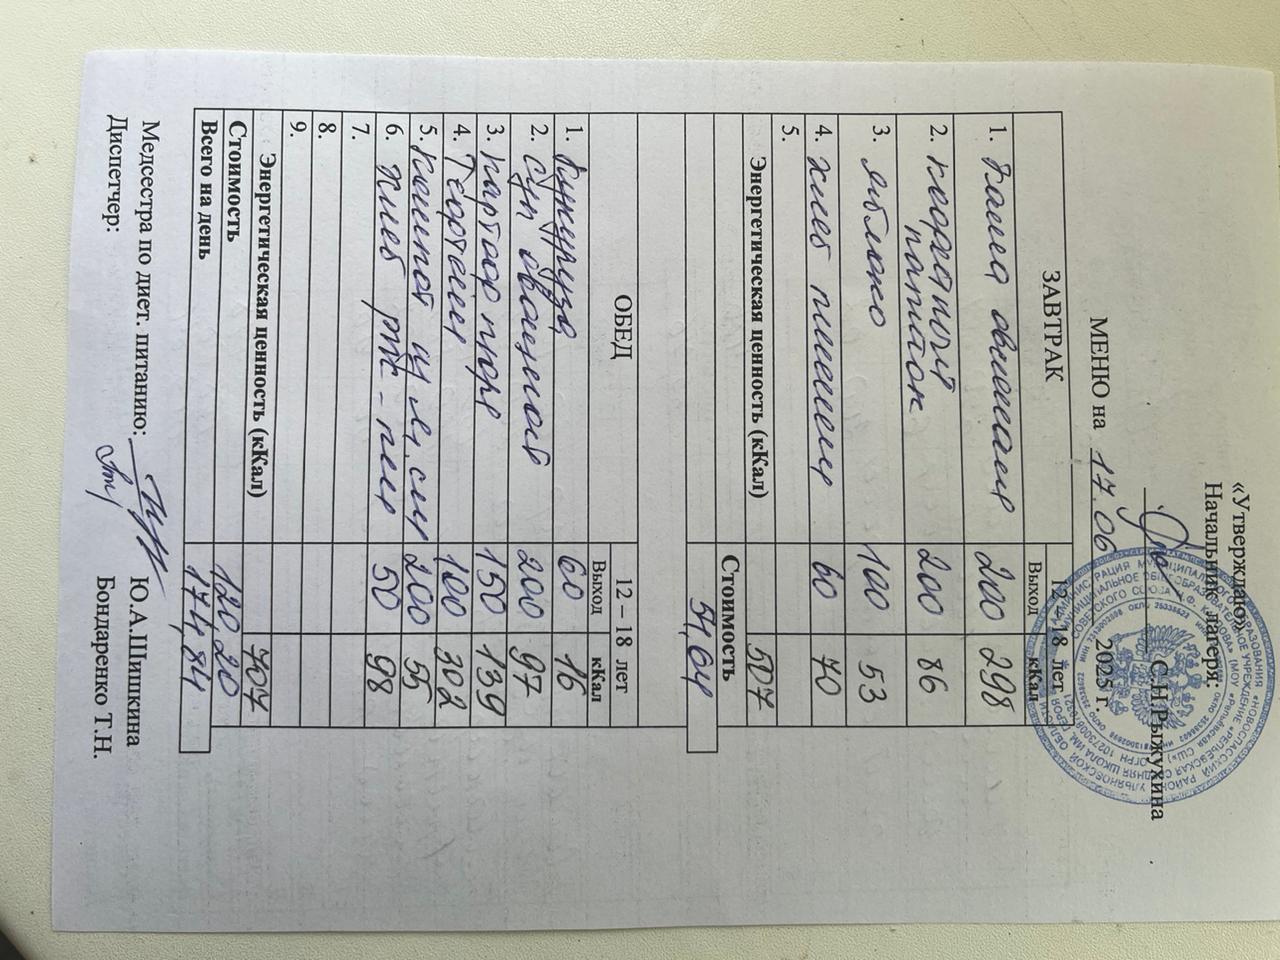 «Утверждаю»
Начальник лагеря:
С.Н.Рыжухина
МЕНЮ на 17.06 2025 г.
ЗАВТРАК 12 – 18 лет
Выход кКал
1. Каша овсяная 200 298
2. кофейный напиток 200 86
3. яблоко 100 53
4. хлеб пшенич 60 70
5.
Энергетическая ценность (кКал) 507
Стоимость
54,64
ОБЕД 12 – 18 лет
Выход кКал
1. Кукуруза 60 16
2. Суп овощной 200 97
3. картоф пюре 150 139
4. Тефтели 100 302
5. компот из 200 55
6. Хлеб рж - пш 50 98
7.
8.
9.
Энергетическая ценность (кКал) 707
Стоимость 120,20
Всего на день 174,84
Медсестра по диет. питанию: Ю.А.Шишкина
Диспетчер: Бондаренко Т.Н.